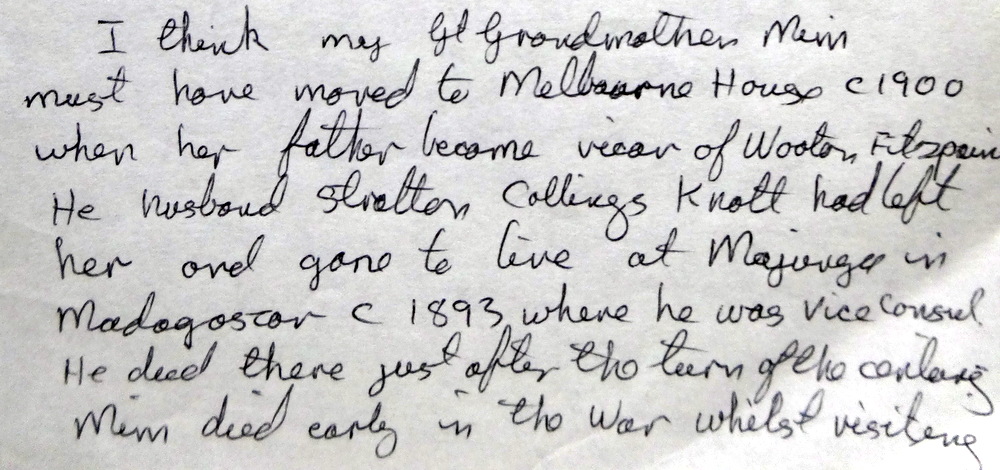 I think my Gt Grandmother Mim
must have moved to Melbourne House c 1900
when her father became vicar of Wooton Fitzpain
He husband Stratton Collings Knott had left
her and gone to live at Majunga in
Madagascar c 1893 where he was Vice Consul.
He died there just after the turn of the century
Mim died early in the War whilst visiting